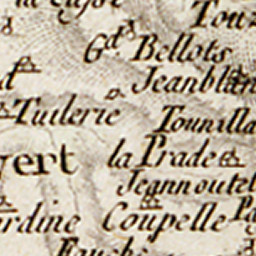 Touz
Gd Bellots
Jeanblan
Tuilerie Tounilla
vert la Prade
Jeannoutel
ardine Coupelle